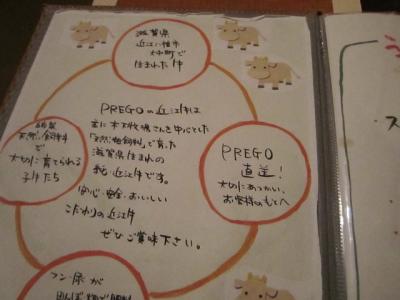 滋賀県
近江八幡市
大中町で
生まれた牛
PREGOの近江牛は
主に木下牧場さんを中心とした
「天然粗飼料」で育った
滋賀県生まれの
純近江牛です。
安心・安全・おいしい
こだわりの近江牛
ぜひご賞味下さい。
天然の飼料
で
大切に育てられる
子牛たち
PREGO
直送!
大切にあつかい、
お客様のもとへ
フン・尿が